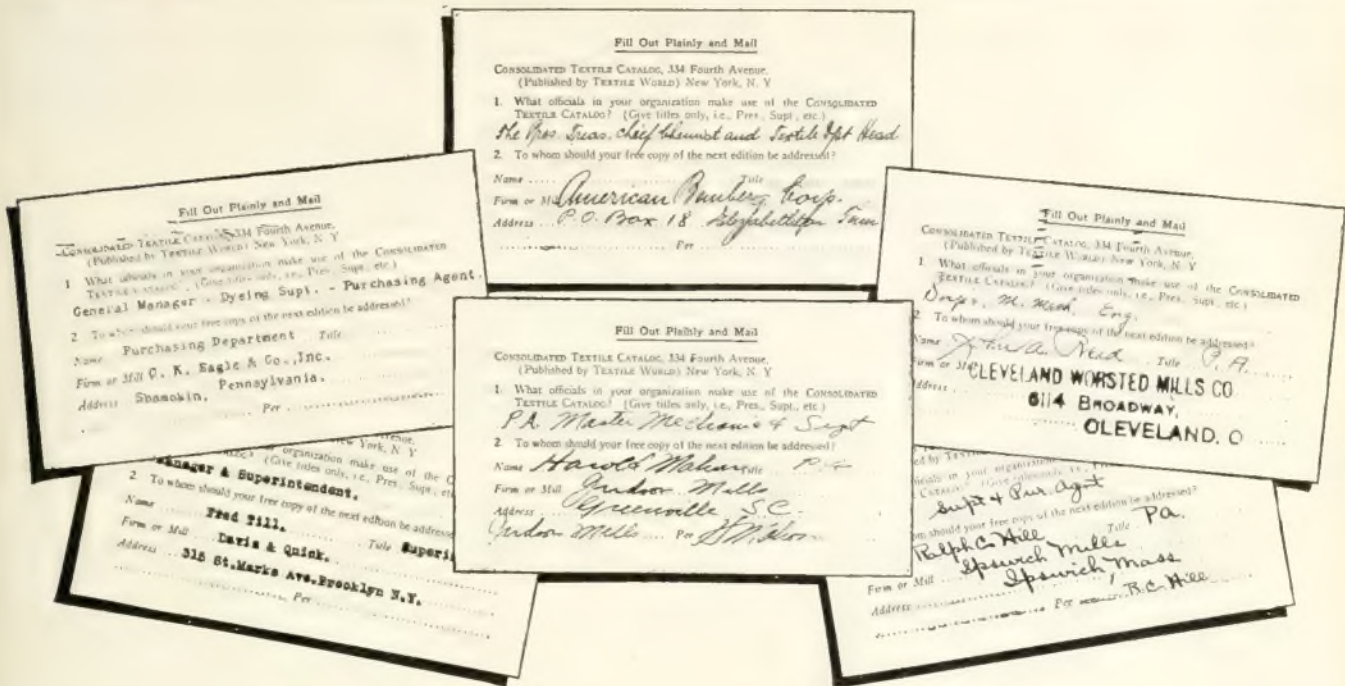 Fill Out Plainly and Mail
CONSOLIDATED TEXTILE CATALOG, 334 Fourth Avenue,
(Published by TEXTILE WORLD) New York, N. Y
1. What officials in your organization make use of the CONSOLIDATED
TEXTILE CATALOG? (Give titles only, i.e., Pres., Supt., etc.)
The Pres. Treas. Chief Chemist and Textile Dpt Head
2. To whom should your free copy of the next edition be addressed?
Name ..... Title
Firm or Mill American Bemberg Corp.
Address P.O. Box 18 Elizabethton Tenn
Per
Fill Out Plainly and Mail
CONSOLIDATED TEXTILE CATALOG, 334 Fourth Avenue,
(Published by TEXTILE WORLD) New York, N. Y
1 What officials in your organization make use of the CONSOLIDATED
TEXTILE CATALOG? (Give titles only, i.e., Pres., Supt., etc.)
General Manager - Dyeing Supt. - Purchasing Agent.
2 To whom should your free copy of the next edition be addressed?
Name Purchasing Department Title
Firm or Mill C. K. Eagle & Co., Inc.
Address Shamokin, Pennsylvania.
Per
Fill Out Plainly and Mail
CONSOLIDATED TEXTILE CATALOG, 334 Fourth Avenue,
(Published by TEXTILE WORLD) New York, N. Y
1. What officials in your organization make use of the CONSOLIDATED
TEXTILE CATALOG? (Give titles only, i.e., Pres., Supt., etc.)
M. Mech. Eng.
2. To whom should your free copy of the next edition be addressed?
Name John A. Reid Title P.A.
Firm or Mill CLEVELAND WORSTED MILLS CO
Address 6114 BROADWAY,
CLEVELAND. O
Fill Out Plainly and Mail
CONSOLIDATED TEXTILE CATALOG, 334 Fourth Avenue,
(Published by TEXTILE WORLD) New York, N. Y
1. What officials in your organization make use of the CONSOLIDATED
TEXTILE CATALOG? (Give titles only, i.e., Pres., Supt., etc.)
P.A. Master Mechanic & Supt
2. To whom should your free copy of the next edition be addressed?
Name Harold Mahon Title P.A.
Firm or Mill Judson Mills
Address Greenville S.C.
Judson Mills Per H Mahon
Avenue,
New York, N. Y
organization make use of the C
(Give titles only, i.e., Pres., Supt., etc
Manager & Superintendent.
2. To whom should your free copy of the next edition be addressed
Name Fred Till. Title Superi
Firm or Mill Davis & Quick.
Address 315 St.Marks Ave.Brooklyn N.Y.
Per
by
officials in your organization
CATALOG? (Give titles only, i.e.,
Supt & Pur. Agt
should your free copy of the next edition be addressed?
Ralph C. Hill Title Pa.
Firm or Mill Ipswich Mills
Address Ipswich Mass
Per R.C. Hill